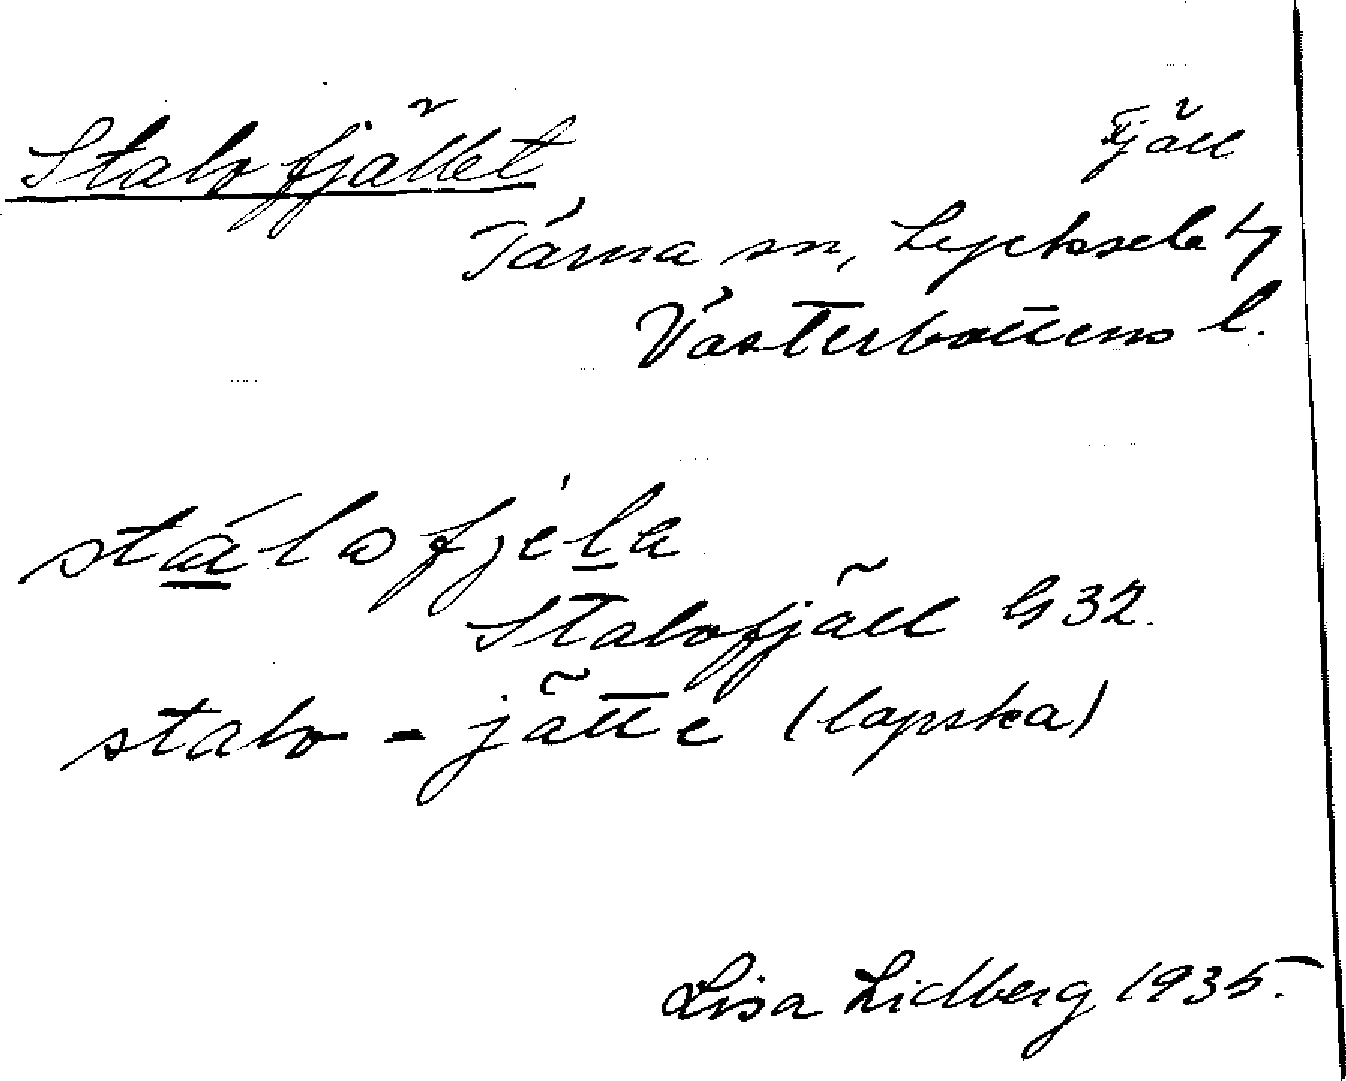 Stalofjället Fjäll
Tärna sn, Lycksele
Västerbottens l.
stálofjela
Stalofjäll G 32.
stalo - jätte (lapska)
Lisa Lidberg 1935.